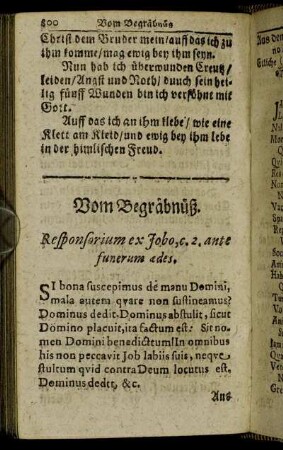 800 Vom Begräbnüs
Christ dem Bruder mein/auff das ich zu
ihm komme/mag ewig bey ihm seyn.
Nun hab ich überwunden Creutz/
leiden/Angst und Noth/ duuch sein hei-
lig fünff Wunden bin ich versöhnt mit
Gott.
Auff das ich an ihm klebe/ wie eine
Klett am Kleid/und ewig bey ihm lebe
in der himlischen Freud.
Vom Begräbnüß.
Responsorium ex Jobo, c. 2. ante
funerum ædes.
SI bona suscepimus de manu Domini,
mala autem qvare non sustineamus?
Dominus dedit, Dominus abstulit, sicut
Domino placuit, ita factum est: Sit no-
men Domini benedictum! In omnibus
his non peccavit Job labiis suis, neqve
stultum qvid contra Deum locutus est.
Dominus dedit, &c.
Aus
Aus dem